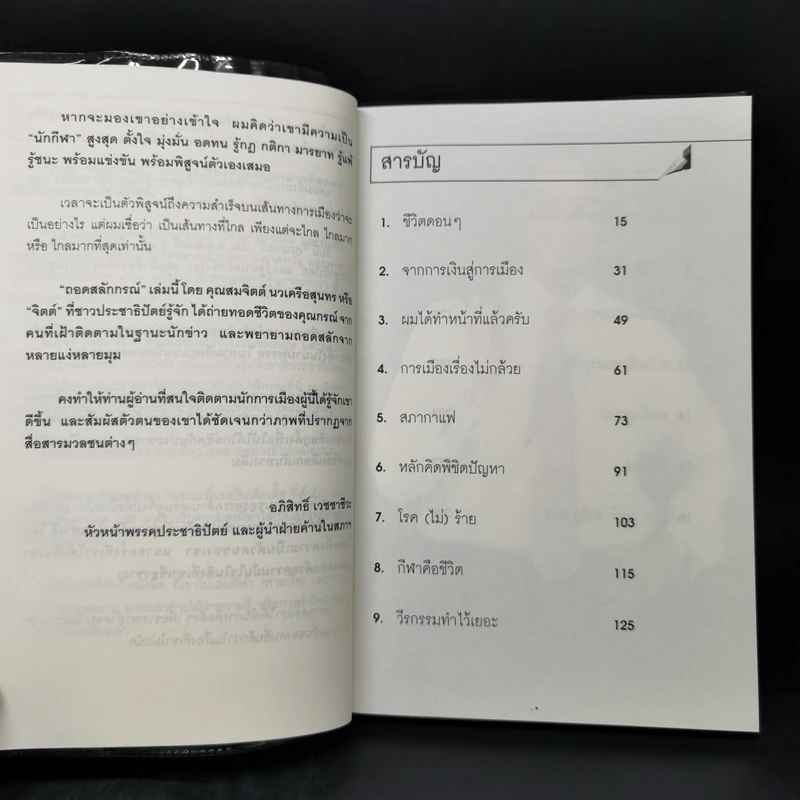 หากจะมองเขาอย่างเข้าใจ ผมคิดว่าเขามีความเป็น
“นักกีฬา” สูงสุด ตั้งใจ มุ่งมั่น อดทน รู้กฎ กติกา มารยาท รู้แพ้
รู้ชนะ พร้อมแข่งขัน พร้อมพิสูจน์ตัวเองเสมอ
เวลาจะเป็นตัวพิสูจน์ถึงความสำเร็จบนเส้นทางการเมืองว่าจะ
เป็นอย่างไร แต่ผมเชื่อว่า เป็นเส้นทางที่ไกล เพียงแต่จะไกล ไกลมาก
หรือ ไกลมากที่สุดเท่านั้น
“ถอดสลักกรณ์” เล่มนี้ โดย คุณสมจิตต์ นวเครือสุนทร หรือ
“จิตต์” ที่ชาวประชาธิปัตย์รู้จัก ได้ถ่ายทอดชีวิตของคุณกรณ์ จาก
คนที่เฝ้าติดตามในฐานะนักข่าว และพยายามถอดสลักจาก
หลายแง่หลายมุม
คงทำให้ท่านผู้อ่านที่สนใจติดตามนักการเมืองผู้นี้ได้รู้จักเขา
ดีขึ้น และสัมผัสตัวตนของเขาได้ชัดเจนกว่าภาพที่ปรากฏจาก
สื่อสารมวลชนต่างๆ
อภิสิทธิ์ เวชชาชีวะ
หัวหน้าพรรคประชาธิปัตย์ และผู้นำฝ่ายค้านในสภาฯ
สารบัญ
1. ชีวิตดอนๆ 15
2. จากการเงินสู่การเมือง 31
3. ผมได้ทำหน้าที่แล้วครับ 49
4. การเมืองเรื่องไม่กล้วย 61
5. สภากาแฟ 73
6. หลักคิดพิชิตปัญหา 91
7. โรค (ไม่) ร้าย 103
8. กีฬาคือชีวิต 115
9. วีรกรรมทำไว้เยอะ 125